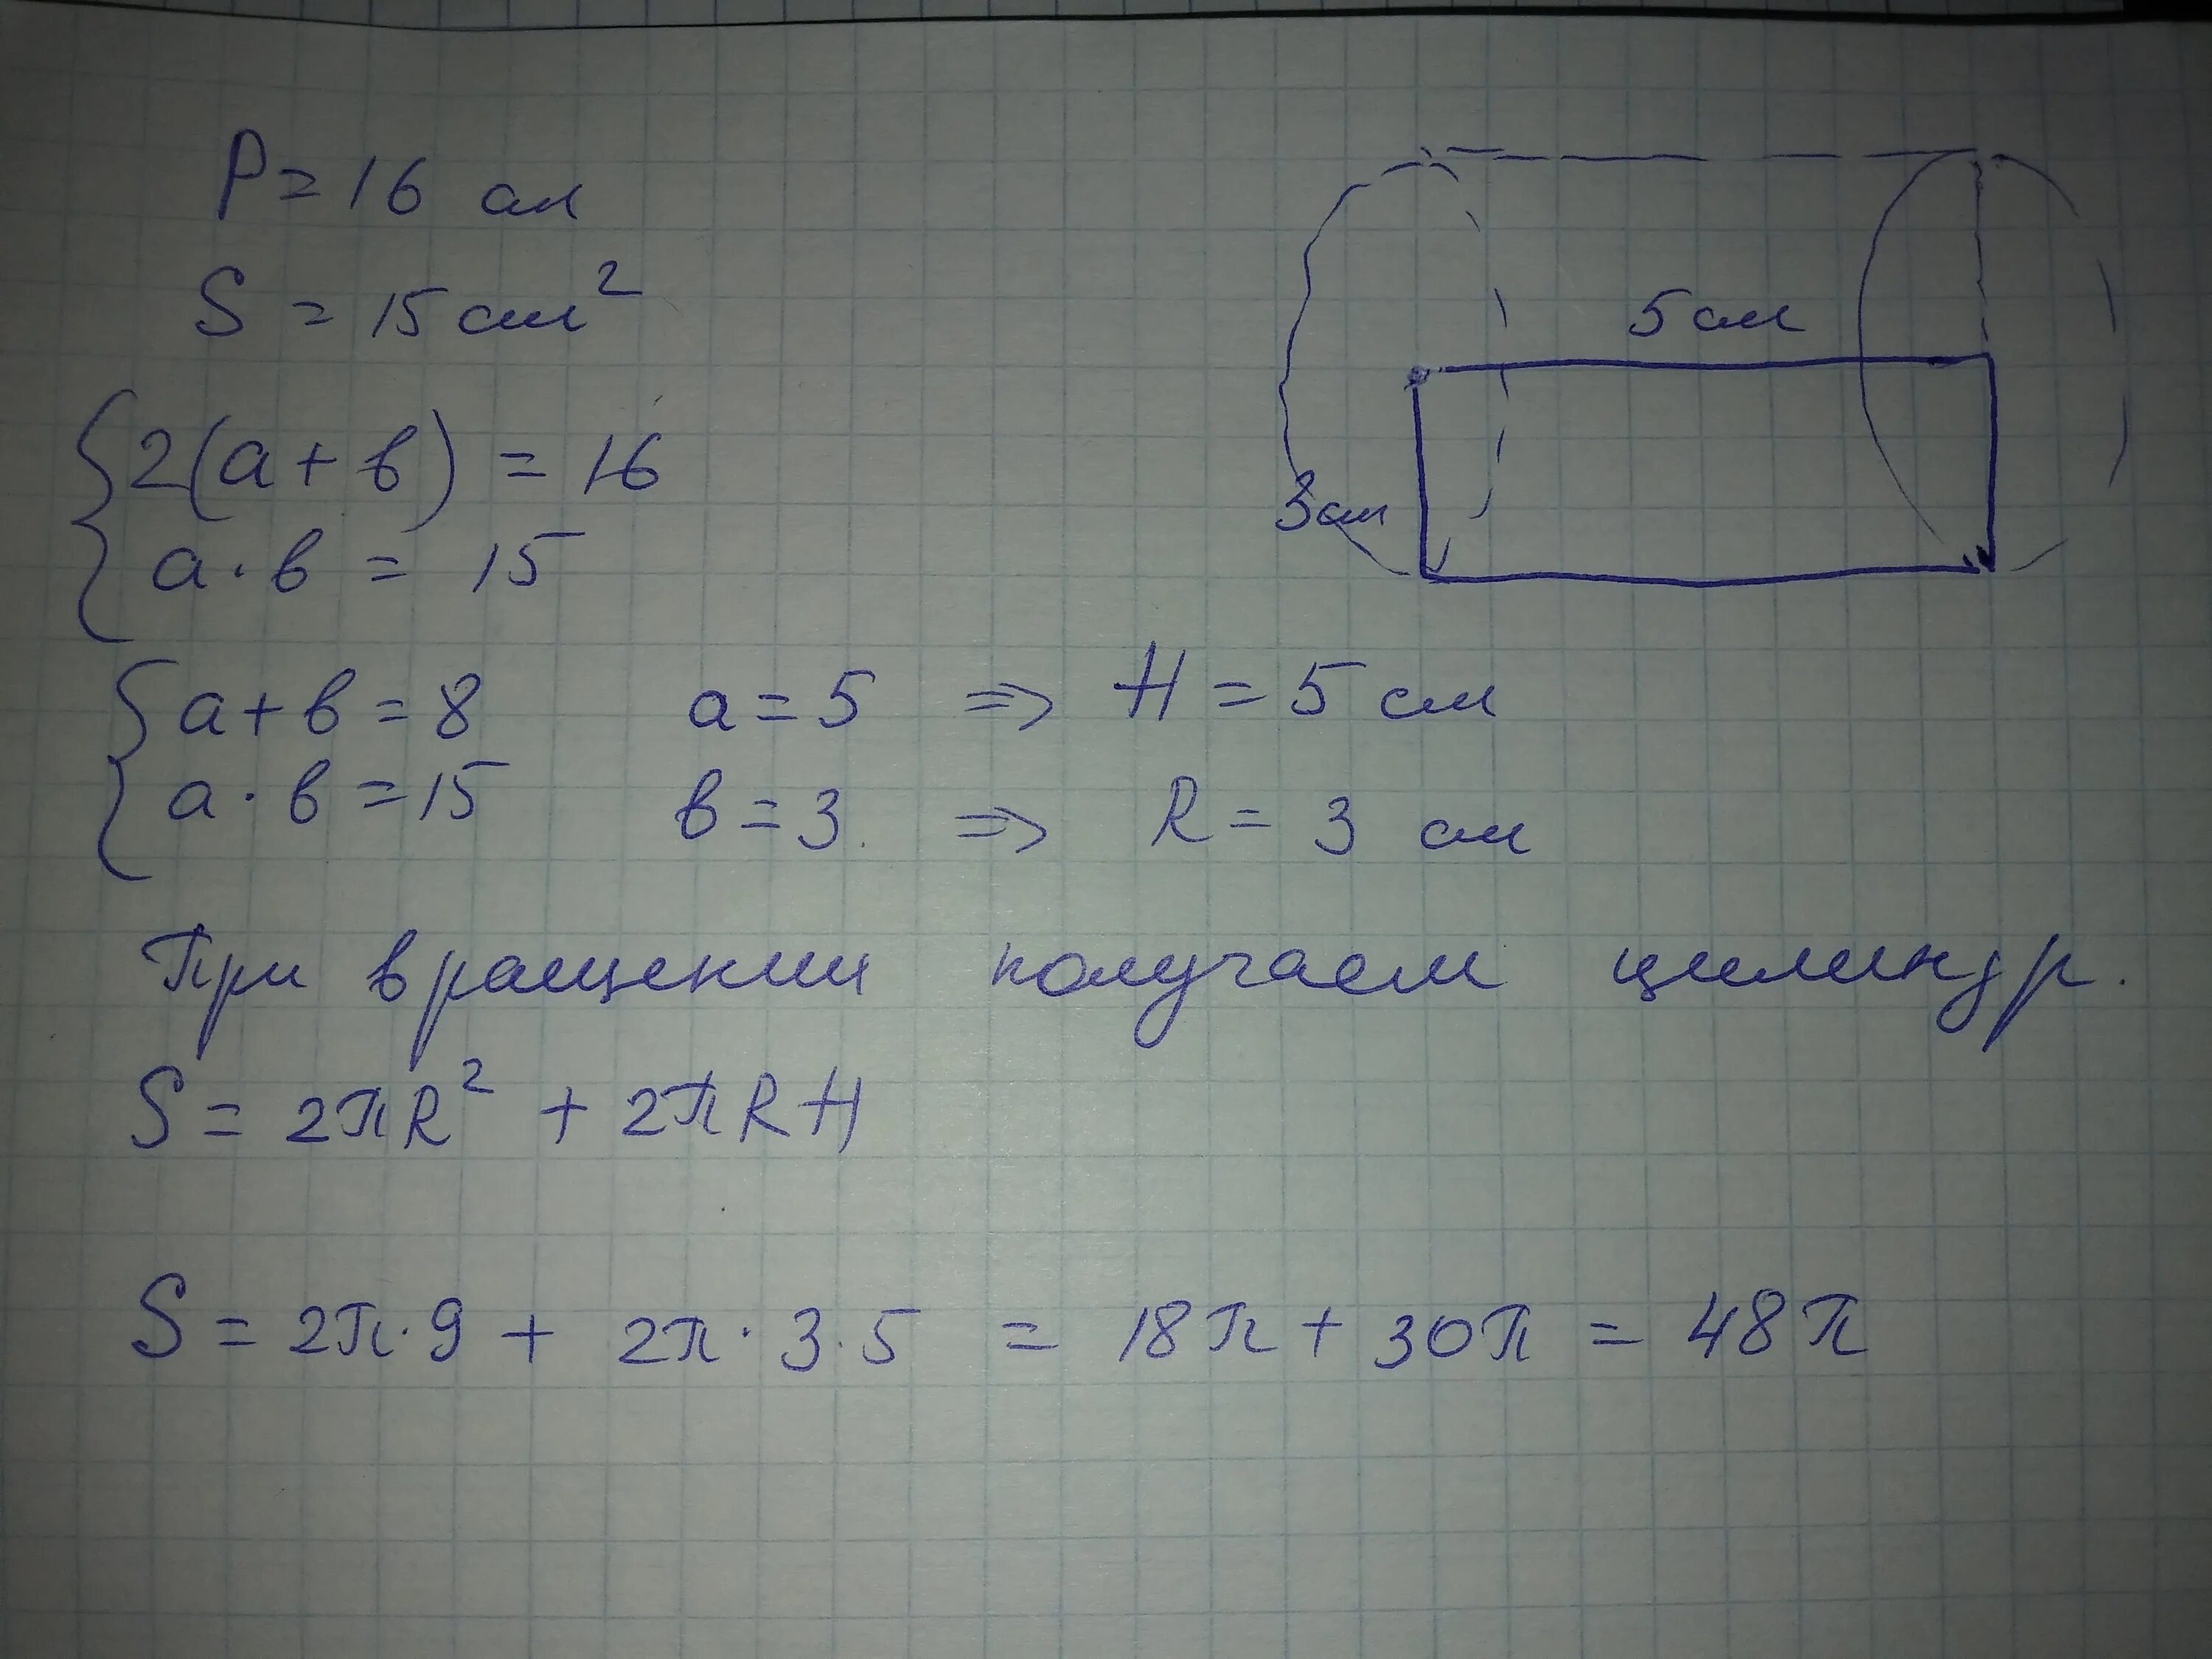 P = 16 см
S = 15 см²
5 см
3 см
{ 2(a + b) = 16
a · b = 15
{ a + b = 8    a = 5 ⇒ H = 5 см
a · b = 15    b = 3. ⇒ R = 3 см
При вращении получаем цилиндр.
S = 2πR² + 2πRH
S = 2π·9 + 2π·3·5 = 18π + 30π = 48π